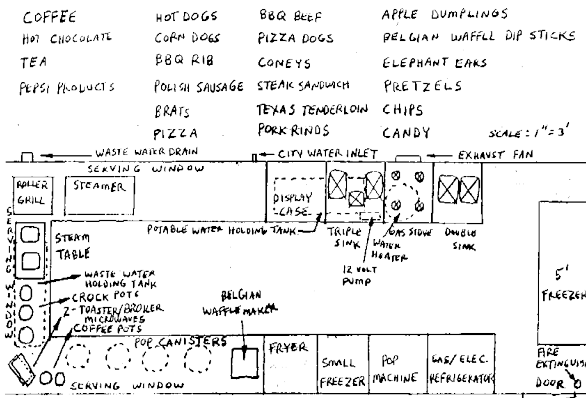 COFFEE
HOT CHOCOLATE
TEA
PEPSI PRODUCTS
HOT DOGS
CORN DOGS
BBQ RIB
POLISH SAUSAGE
BRATS
PIZZA
BBQ BEEF
PIZZA DOGS
CONEYS
STEAK SANDWICH
TEXAS TENDERLOIN
PORK RINDS
APPLE DUMPLINGS
BELGIAN WAFFLE DIP STICKS
ELEPHANT EARS
PRETZELS
CHIPS
CANDY
SCALE: 1"=3'
WASTE WATER DRAIN
CITY WATER INLET
EXHAUST FAN
SERVING WINDOW
ROLLER
GRILL
STEAMER
DISPLAY
CASE
POTABLE WATER HOLDING TANK
TRIPLE
SINK
GAS STOVE
WATER
HEATER
12 VOLT
PUMP
DOUBLE
SINK
SERVING WINDOW
STEAM
TABLE
WASTE WATER
HOLDING TANK
CROCK POTS
2-TOASTER/BROILER
MICROWAVES
COFFEE POTS
POP CANISTERS
BELGIAN
WAFFLE MAKER
5'
FREEZER
FRYER
SMALL
FREEZER
POP
MACHINE
GAS/ELEC.
REFRIGERATOR
FIRE
EXTINGUIS
DOOR
SERVING WINDOW